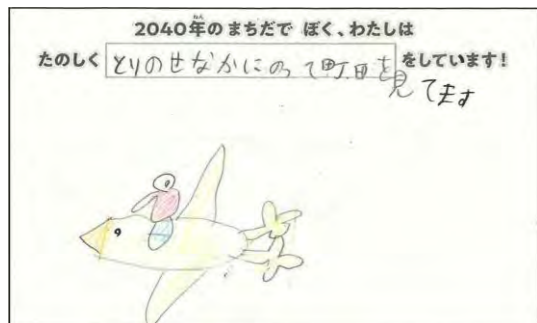 2040年のまちだで ぼく、わたしは
たのしく とりのせなかにのって町田を をしています！
見てます